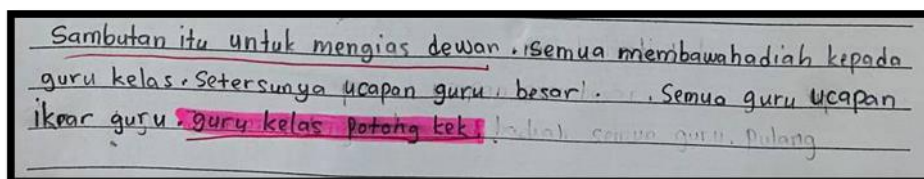 Sambutan itu untuk mengias dewan. Semua membawahadiah kepada
guru kelas. Setersunya ucapan guru besari. . Semua guru ucapan
ikrar guru. guru kelas potong kek. hadiah semua guru. pulang